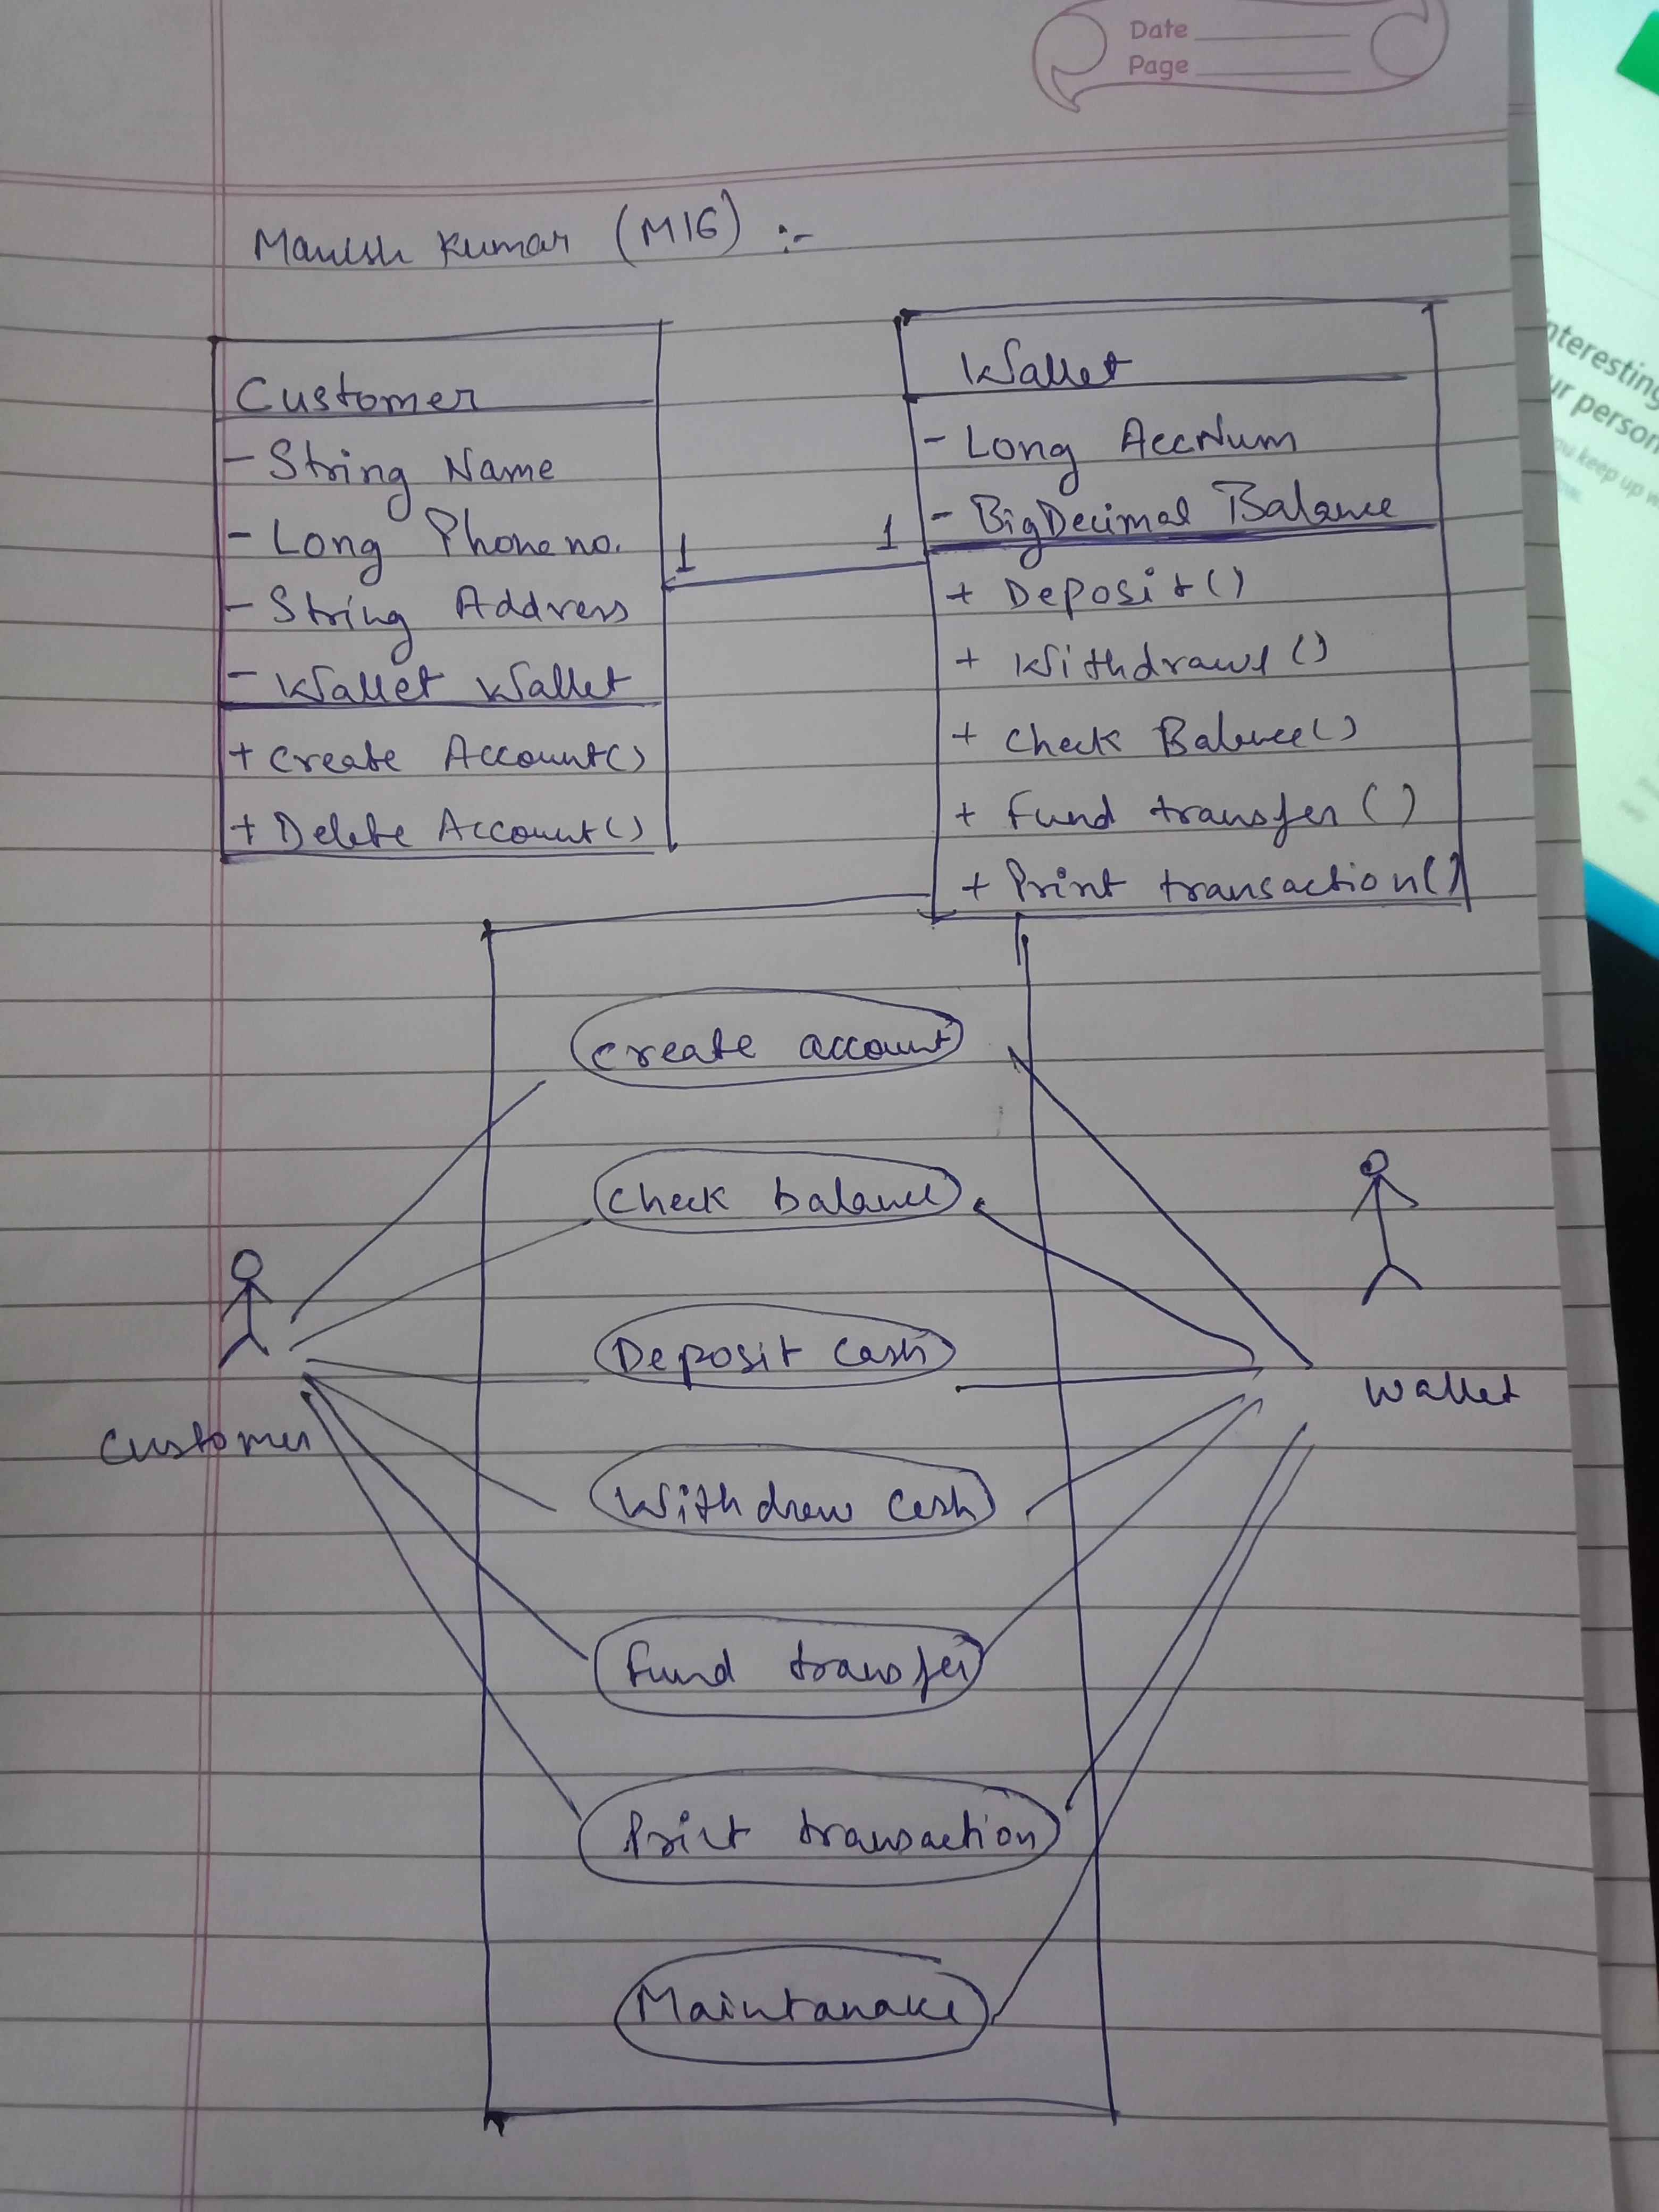 Date
Page
Manish Kumar (M16) :-
Customer
- String Name
- Long Phone no.
- String Address
- Wallet Wallet
+ Create Account()
+ Delete Account()
1
1
Wallet
- Long AccNum
- BigDecimal Balance
+ Deposit()
+ Withdrawl()
+ Check Balance()
+ Fund transfer()
+ Print transaction()
create account
Check balance
Deposit cash
Withdraw cash
Fund transfer
Print transaction
Customer
Wallet
nteresting
ur person
you keep up w